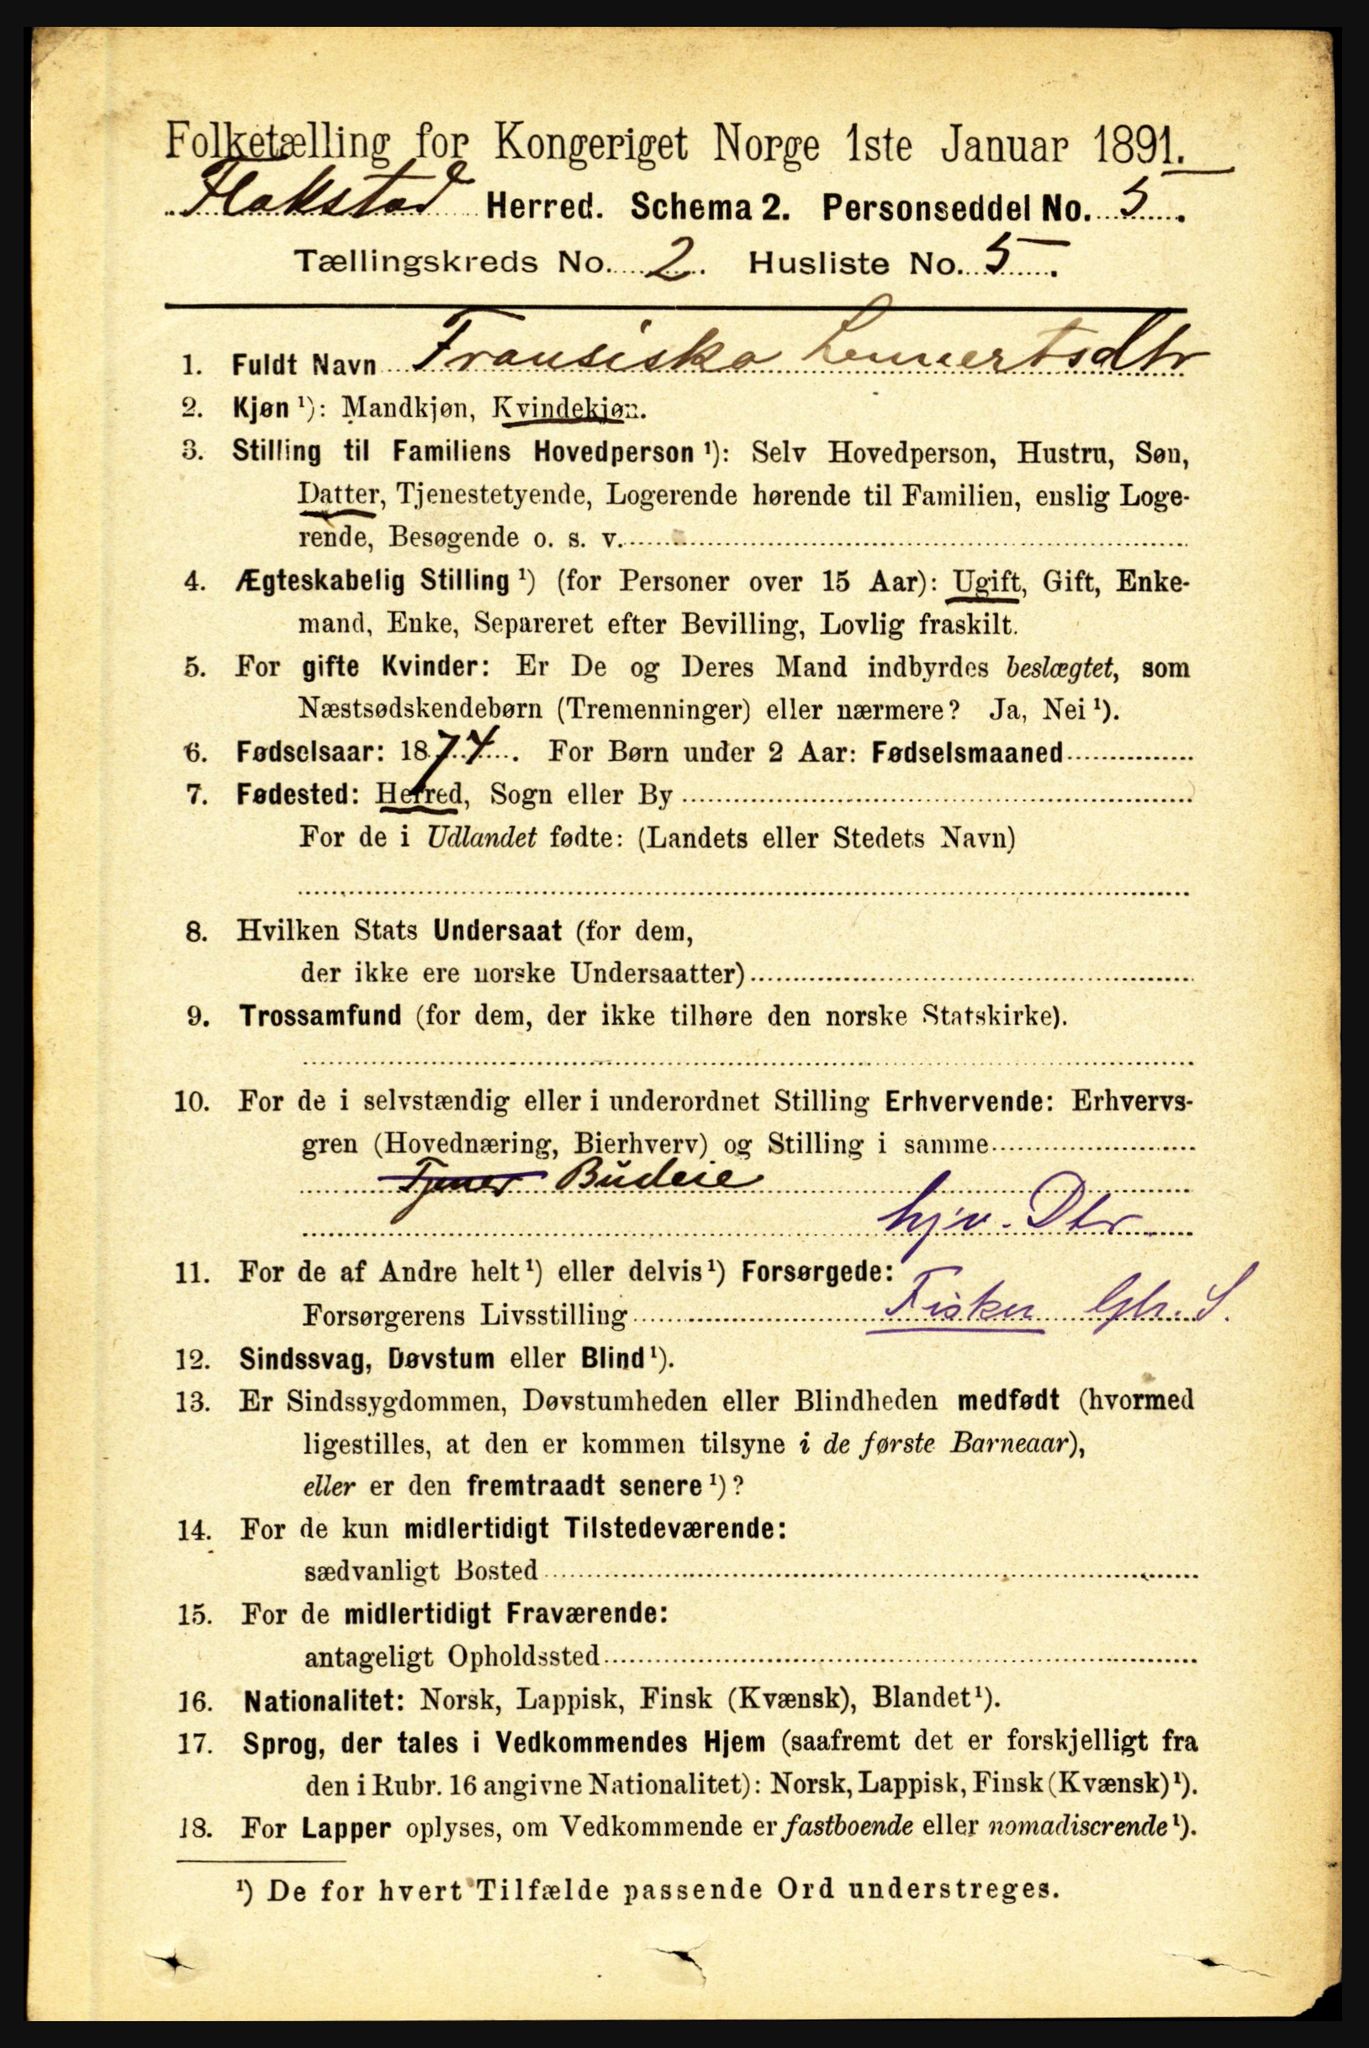 Folketælling for Kongeriget Norge 1ste Januar 1891.
Flakstad Herred. Schema 2. Personseddel No. 5.
Tællingskreds No. 2. Husliste No. 5.
1. Fuldt Navn Fransiska Lennertsdtr
2. Kjøn ¹): Mandkjøn, Kvindekjøn.
3. Stilling til Familiens Hovedperson ¹): Selv Hovedperson, Hustru, Søn,
Datter, Tjenestetyende, Logerende hørende til Familien, enslig Loge-
rende, Besøgende o. s. v.
4. Ægteskabelig Stilling ¹) (for Personer over 15 Aar): Ugift, Gift, Enke-
mand, Enke, Separeret efter Bevilling, Lovlig fraskilt.
5. For gifte Kvinder: Er De og Deres Mand indbyrdes beslægtet, som
Næstsødskendebørn (Tremenninger) eller nærmere? Ja, Nei ¹).
6. Fødselsaar: 1874. For Børn under 2 Aar: Fødselsmaaned
7. Fødested: Herred, Sogn eller By
For de i Udlandet fødte: (Landets eller Stedets Navn)
8. Hvilken Stats Undersaat (for dem,
der ikke ere norske Undersaatter)
9. Trossamfund (for dem, der ikke tilhøre den norske Statskirke).
10. For de i selvstændig eller i underordnet Stilling Erhvervende: Erhvervs-
gren (Hovednæring, Bierhverv) og Stilling i samme
Tjener Budeie
hjv. Dtr
11. For de af Andre helt ¹) eller delvis ¹) Forsørgede:
Forsørgerens Livsstilling Fisker Gbr. S.
12. Sindssvag, Døvstum eller Blind ¹).
13. Er Sindssygdommen, Døvstumheden eller Blindheden medfødt (hvormed
ligestilles, at den er kommen tilsyne i de første Barneaar),
eller er den fremtraadt senere ¹)?
14. For de kun midlertidigt Tilstedeværende:
sædvanligt Bosted
15. For de midlertidigt Fraværende:
antageligt Opholdssted
16. Nationalitet: Norsk, Lappisk, Finsk (Kvænsk), Blandet ¹).
17. Sprog, der tales i Vedkommendes Hjem (saafremt det er forskjelligt fra
den i Rubr. 16 angivne Nationalitet): Norsk, Lappisk, Finsk (Kvænsk) ¹).
18. For Lapper oplyses, om Vedkommende er fastboende eller nomadiserende ¹).
¹) De for hvert Tilfælde passende Ord understreges.